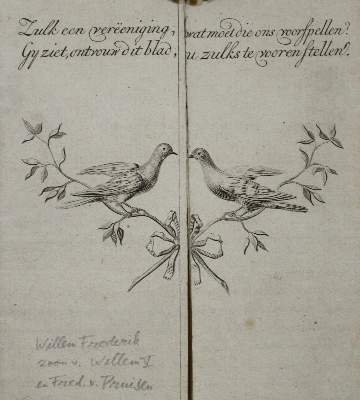 Zulk een veréeniging, wat moet die ons voorspellen?
Gy ziet, ontvouw dit blad, u zulks te vooren stellen.
Willem Frederik
zoon v. Willem V
en Fred. v. Pruisen